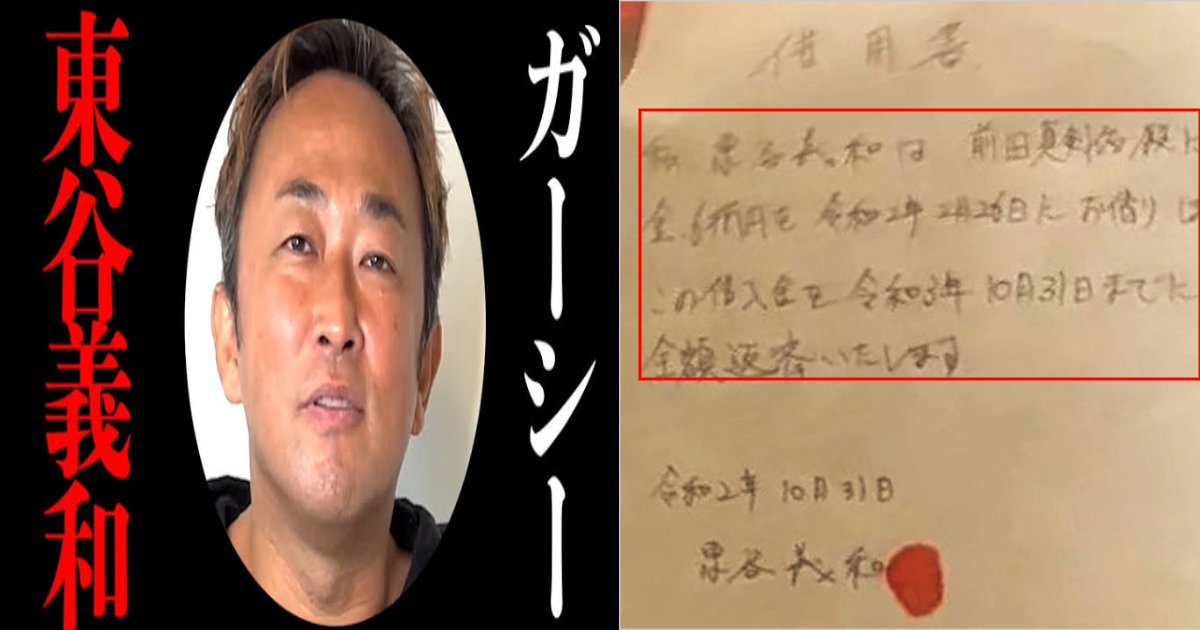 東谷義和
ガーシー
借用書
私 東谷義和は 前田 殿に
金 円を 令和2年2月26日に お借りし
この借入金を 令和3年 10月31日までに
全額返済いたします
令和2年 10月31日
東谷義和